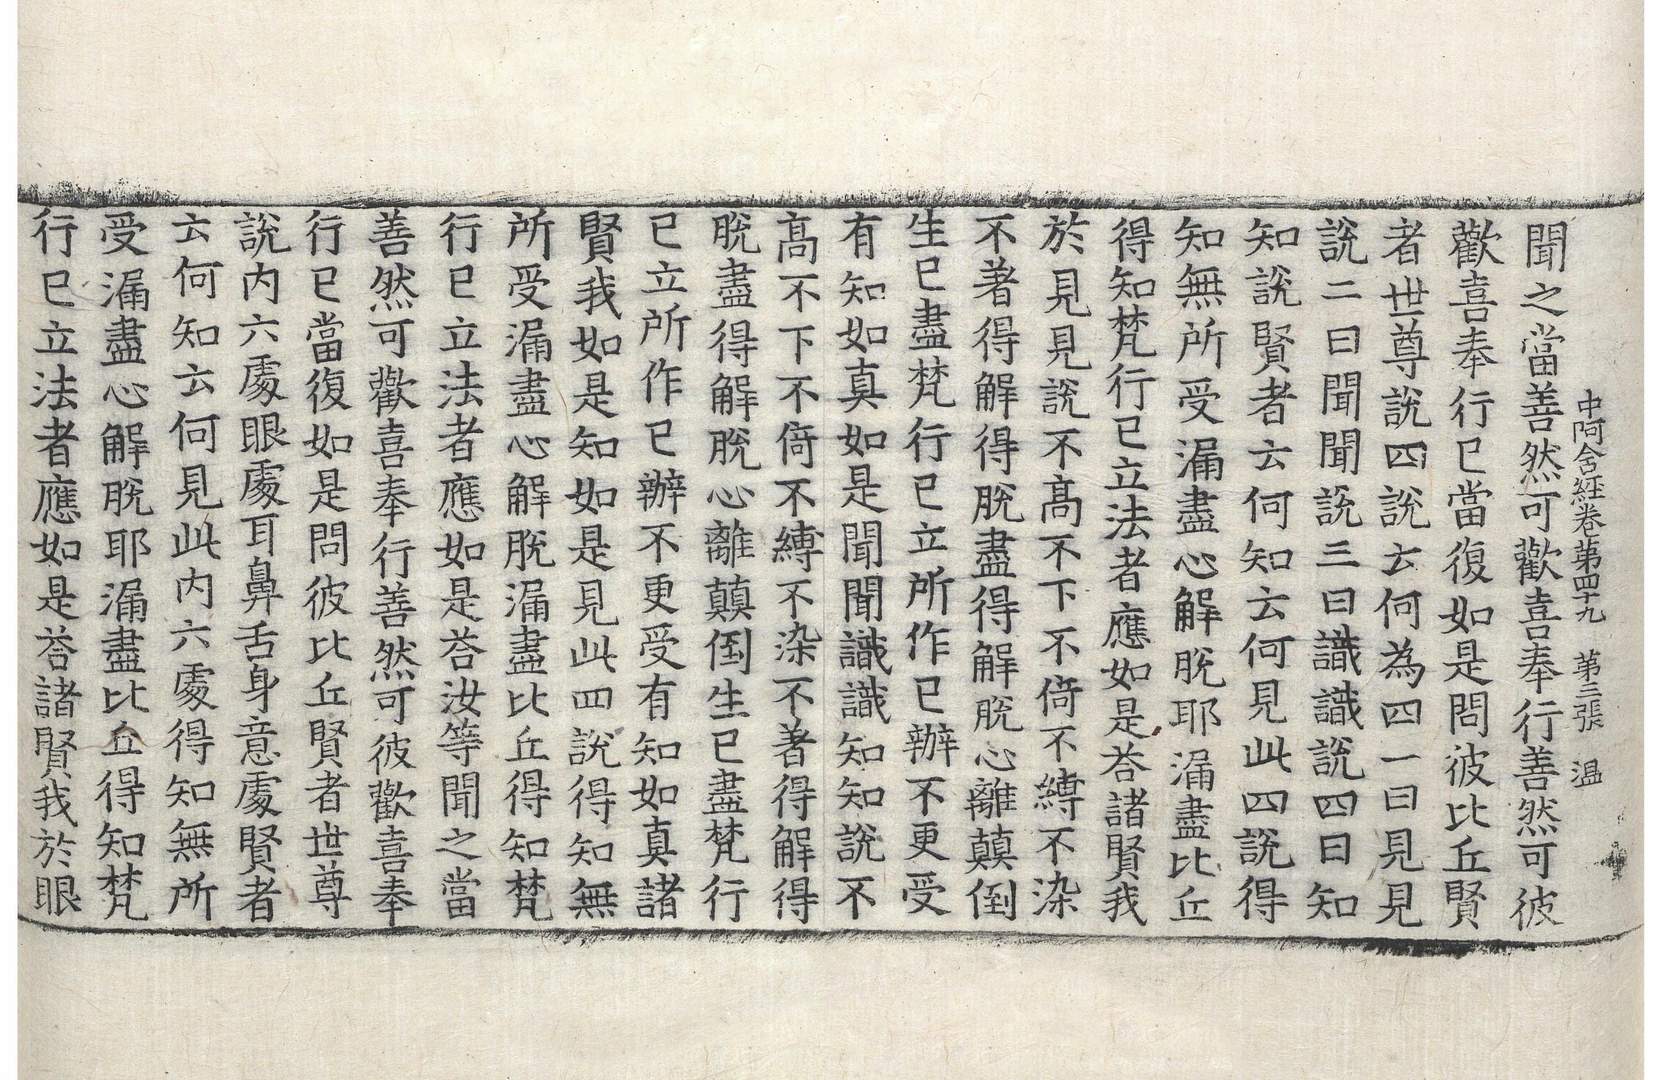 中阿含經卷第四十九 第三張 溫
聞之當善然可歡喜奉行善然可彼
歡喜奉行已當復如是問彼比丘賢
者世尊說四說云何為四一曰見見
說二曰聞聞說三曰識識說四曰知
知說賢者云何知云何見此四說得
知無所受漏盡心解脫耶漏盡比丘
得知梵行已立法者應如是荅諸賢我
於見見說不高不下不倚不縛不染
不著得解得脫盡得解脫心離顛倒
生已盡梵行已立所作已辦不更受
有知如真如是聞聞識識知知說不
高不下不倚不縛不染不著得解得
脫盡得解脫心離顛倒生已盡梵行
已立所作已辦不更受有知如真諸
賢我如是知如是見此四說得知無
所受漏盡心解脫漏盡比丘得知梵
行已立法者應如是荅汝等聞之當
善然可歡喜奉行善然可彼歡喜奉
行已當復如是問彼比丘賢者世尊
說内六處眼處耳鼻舌身意處賢者
云何知云何見此内六處得知無所
受漏盡心解脫耶漏盡比丘得知梵
行已立法者應如是荅諸賢我於眼